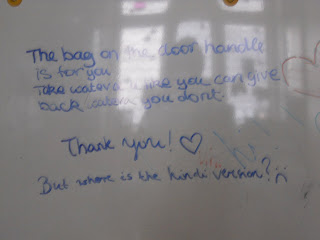 The bag on the door handle
is for you
Take wateva u like you can give
back wateva you dont.
Thank you! ♡
But where is the hindi version? :(